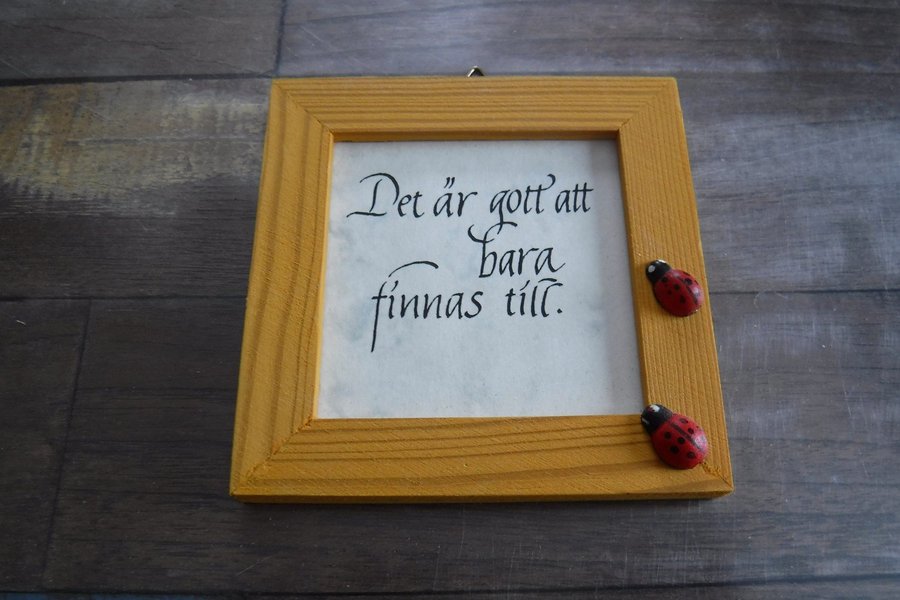 Det är gott att
bara
finnas till.